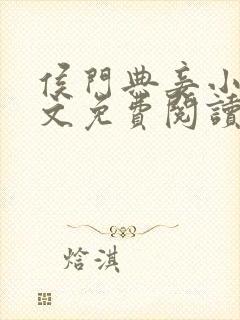 侯門典妾小
文免費閱讀
焓淇